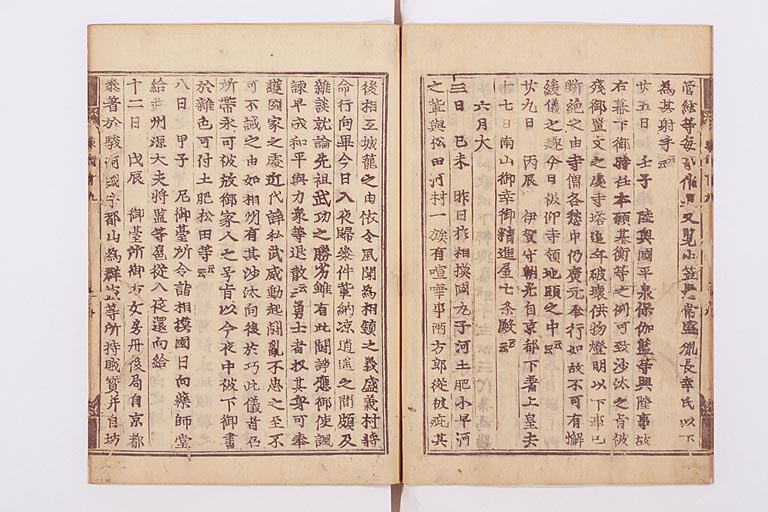 管絃等每事催興又覽小笠懸常盛胤長幸氏以下
為其射手云云
廿五日 壬子 陸奥國平泉保伽藍等興隆事故
右幕下御時任本願基衡等之例可致沙汰之旨被
殘御置文之處寺塔追年破壞供物燈明以下事已
斷絶之由寺僧各愁申仍廣元奉行如故不可有懈
緩儀之趣今日被仰寺領地頭之中云云
廿九日 丙辰 伊賀守朝光自京都下著上皇去
十七日南山御幸御精進屋七条殿云云
六月大
三日 己未 昨日於相摸國丸子河土肥小早河
之輩與松田河村一族有喧嘩事兩方郎從被疵其
後相互城籠之由依令風聞為相鎮之義盛義村等
命行向畢今日入夜歸參件輩納涼逍遥之間頗及
雜談就論先祖武功之勝劣雖有此鬪諍應御使諷
諫早成和平與力衆等退散云云勇士者収其身可奉
護國家之處近代諍私武威動起鬪亂不忠之至不
可不誡之由如相州有其沙汰向後於巧此儀者召
所帶永可被放御家人之号旨以今夜中被下御書
於雜色可付土肥松田等云云
八日 甲子 尼御臺所令詣相摸國日向藥師堂
給武州源大夫將監等扈從入夜還向給
十二日 戊辰 御臺所御方女房丹後局自京都
參著於駿河國宇都山為群盗等所持財寶并自坊